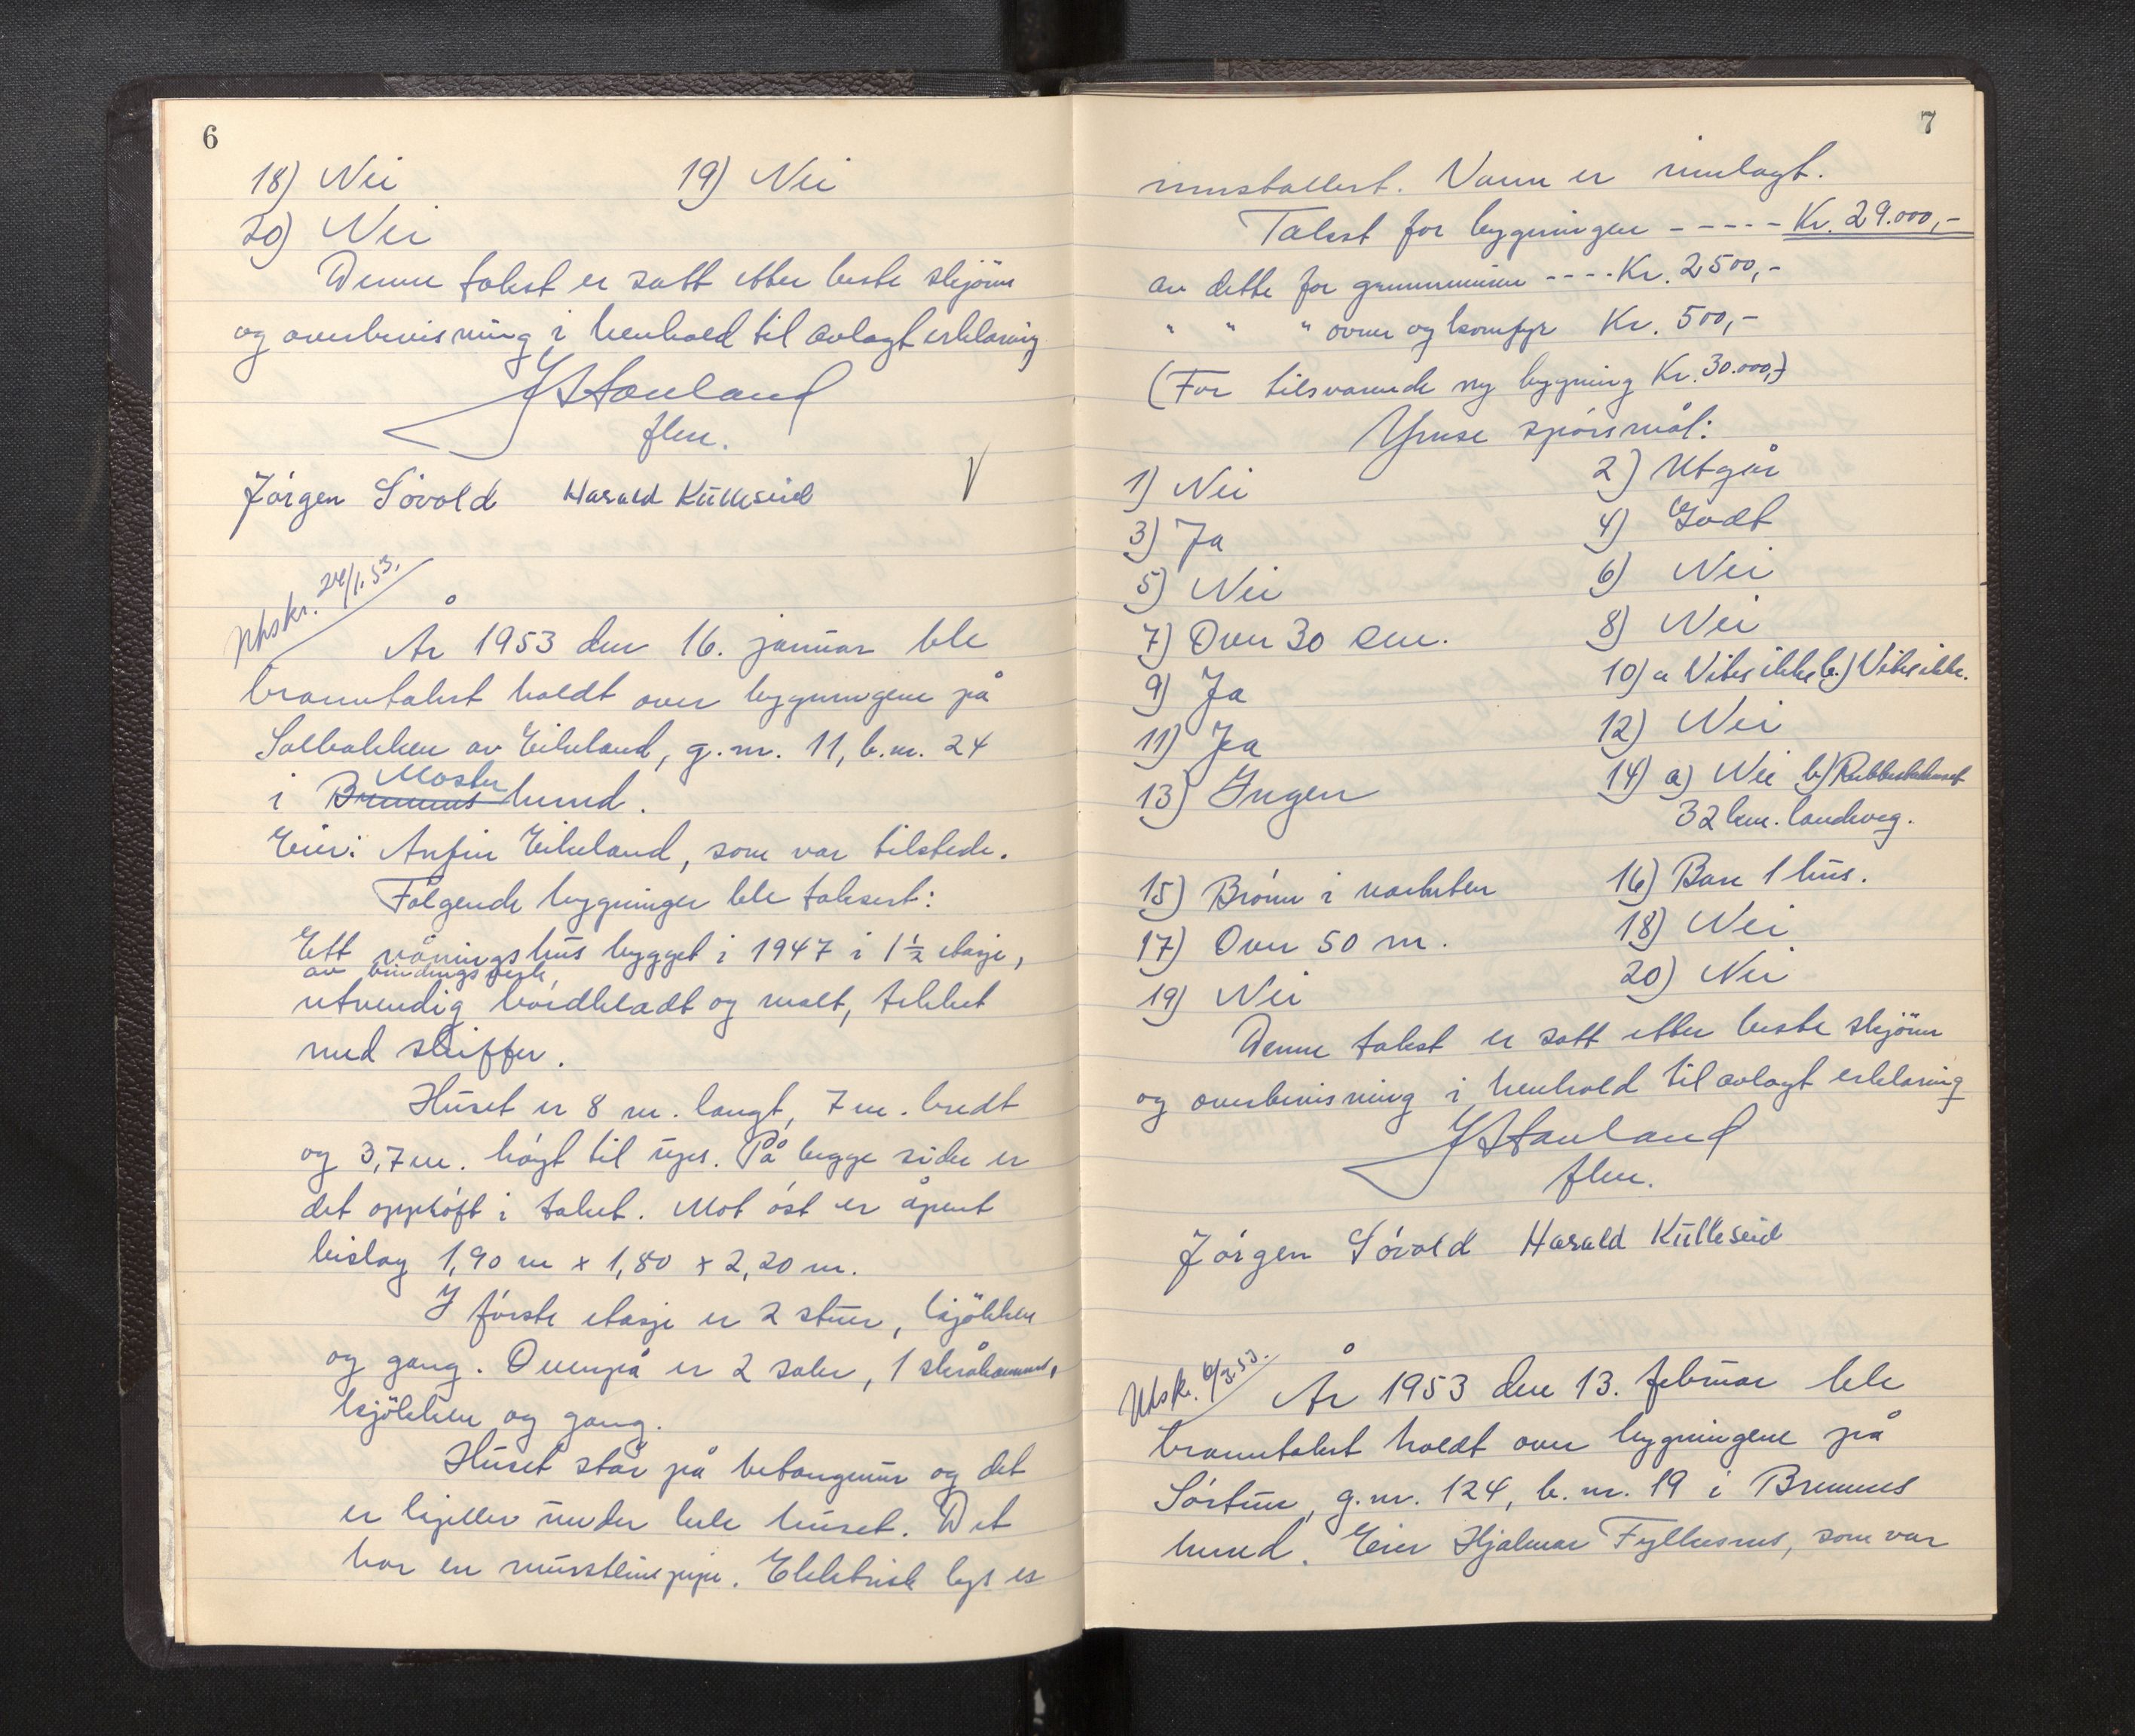 6
18) Nei 19) Nei
20) Nei
Denne takst er satt etter beste skjönn
og overbevisning i henhold til avlagt erklæring
Hauland
flm.
Jórgen Sóvold Harald Kulleseid
Utskr. 24/1.53.
År 1953 den 16. januar ble
branntakst holdt over bygningene på
Solbakken av Eikeland, g.nr. 11, b.nr. 24
Moster
i Bremnes herred.
Eier: Anfin Eikeland, som var tilstede.
Fólgende bygninger ble taksert:
Ett våningshus bygget i 1947 i 1½ etasje,
av bindingsverk,
utvendig bordkledt og malt, tekket
med skiffer.
Huset er 8 m. langt, 7 m. bredt
og 3,7 m. hógt til ups. På begge sider er
det opplóft i taket. Mot óst er åpent
bislag 1,90 m x 1,80 x 2,20 m.
I fórste etasje er 2 stuer, kjökken
og gang. Ovenpå er 2 saler, 1 skråkammer,
kjökken og gang.
Huset står på betongmur og det
er kjeller under hele huset. Det
har en mursteinspipe. Elektrisk lys er
7
innstallert. Vann er innlagt.
Takst for bygningen ----- Kr. 29.000,-
av dette for grunnmuren ---- Kr. 2500,-
" " " ovner og komfyr Kr. 500,-
(For tilsvarende ny bygning Kr. 30.000,-)
Ymse spórsmål:
1) Nei 2) Utgår
3) Ja 4) Godt
5) Nei 6) Nei
7) Over 30 cm. 8) Nei
9) Ja 10) a Vites ikke b.) Vites ikke.
11) Ja 12) Nei
13) Ingen 14) a) Nei b) Rubbestadneset
32 km. landveg.
15) Brónn i nærheten 16) Bare 1 hus.
17) Over 50 m. 18) Nei
19) Nei 20) Nei
Denne takst er satt etter beste skjönn
og overbevisning i henhold til avlagt erklæring
Hauland
flm.
Jórgen Sóvold Harald Kulleseid
Utskr. 6/3.53.
År 1953 den 13. februar ble
branntakst holdt over bygningene på
Sórtun, g.nr. 124, b.nr. 19 i Bremnes
herred. Eier Hjalmar Fylkesnes, som var